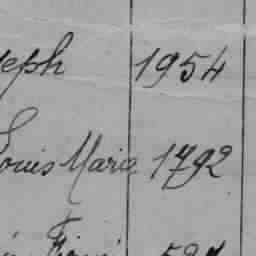 seph 1954
Louis Marie 1792